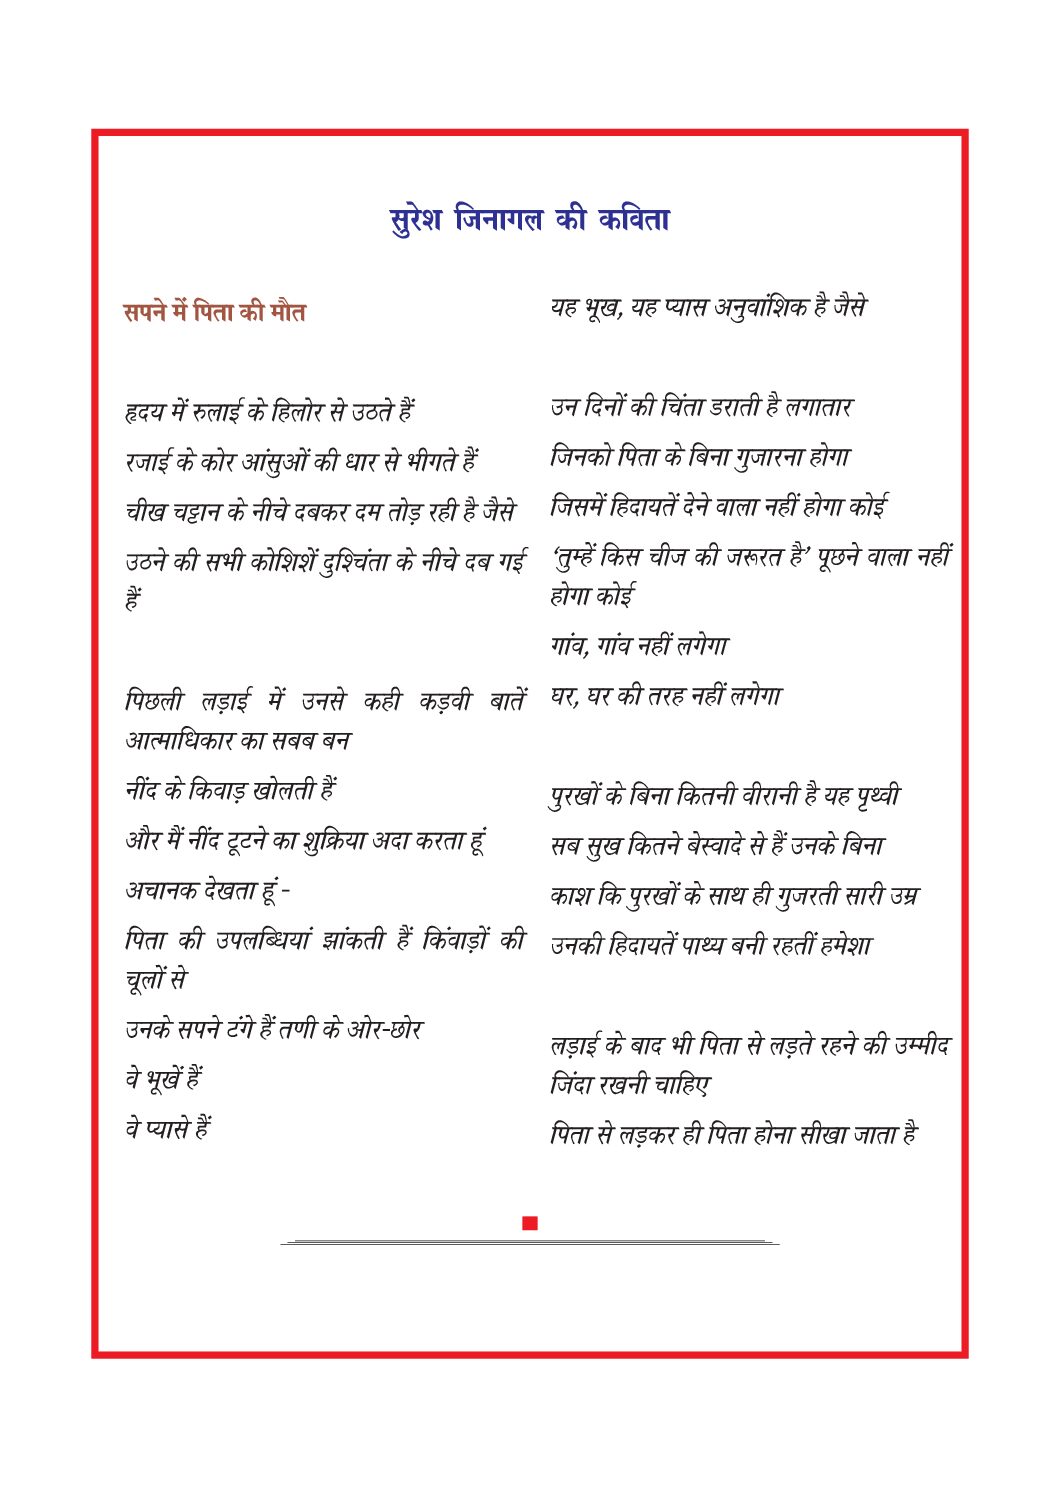 सुरेश जिनागल की कविता
सपने में पिता की मौत
हृदय में रुलाई के हिलोर से उठते हैं
रजाई के कोर आंसुओं की धार से भीगते हैं
चीख चट्टान के नीचे दबकर दम तोड़ रही है जैसे
उठने की सभी कोशिशें दुश्चिंता के नीचे दब गई
हैं
पिछली लड़ाई में उनसे कही कड़वी बातें
आत्माधिकार का सबब बन
नींद के किवाड़ खोलती हैं
और मैं नींद टूटने का शुक्रिया अदा करता हूं
अचानक देखता हूं -
पिता की उपलब्धियां झांकती हैं किंवाड़ों की
चूलों से
उनके सपने टंगे हैं तणी के ओर-छोर
वे भूखें हैं
वे प्यासे हैं
यह भूख, यह प्यास अनुवांशिक है जैसे
उन दिनों की चिंता डराती है लगातार
जिनको पिता के बिना गुजारना होगा
जिसमें हिदायतें देने वाला नहीं होगा कोई
‘तुम्हें किस चीज की जरूरत है’ पूछने वाला नहीं
होगा कोई
गांव, गांव नहीं लगेगा
घर, घर की तरह नहीं लगेगा
पुरखों के बिना कितनी वीरानी है यह पृथ्वी
सब सुख कितने बेस्वादे से हैं उनके बिना
काश कि पुरखों के साथ ही गुजरती सारी उम्र
उनकी हिदायतें पाथ्य बनी रहतीं हमेशा
लड़ाई के बाद भी पिता से लड़ते रहने की उम्मीद
जिंदा रखनी चाहिए
पिता से लड़कर ही पिता होना सीखा जाता है